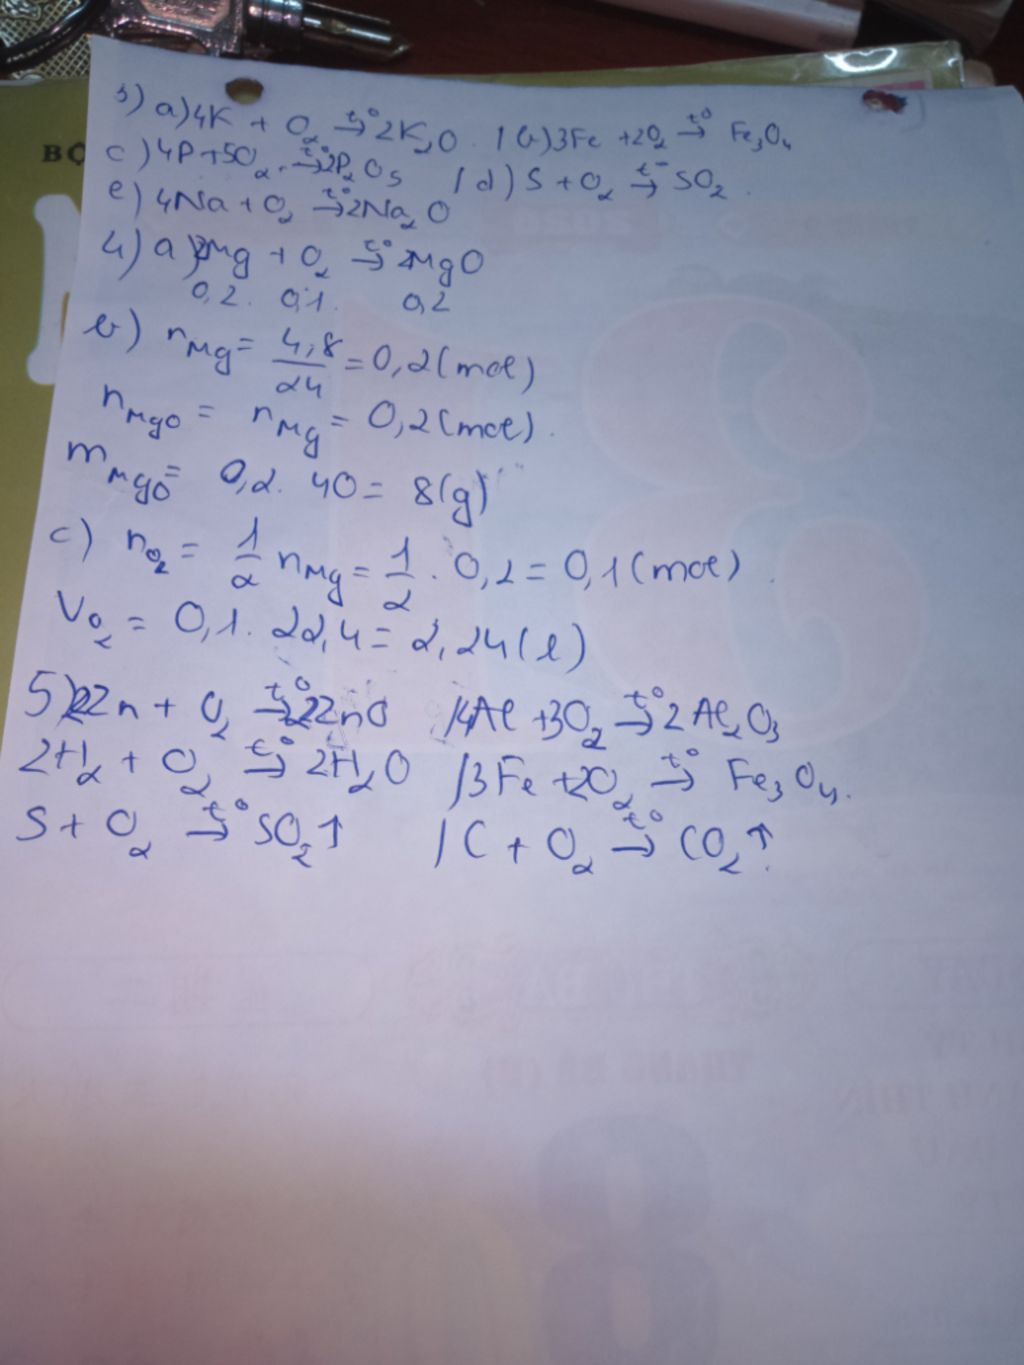 3) a) 4K + O₂ →t° 2K₂O. / b) 3Fe + 2O₂ →t° Fe₃O₄
BỘ
c) 4P + 5O₂ →t° 2P₂O₅ / d) S + O₂ →t° SO₂.
e) 4Na + O₂ →t° 2Na₂O
4) a) 2Mg + O₂ →t° 2MgO
0,2. 0,1. 0,2
b) nMg = 4,8/24 = 0,2 (mol)
nMgO = nMg = 0,2 (mol).
mMgO = 0,2. 40 = 8(g)
c) nO₂ = 1/2 nMg = 1/2 . 0,2 = 0,1 (mol).
VO₂ = 0,1. 22,4 = 2,24 (l)
5) 2Zn + O₂ →t° 2ZnO / 4Al + 3O₂ →t° 2Al₂O₃
2H₂ + O₂ →t° 2H₂O / 3Fe + 2O₂ →t° Fe₃O₄.
S + O₂ →t° SO₂↑ / C + O₂ →t° CO₂↑.